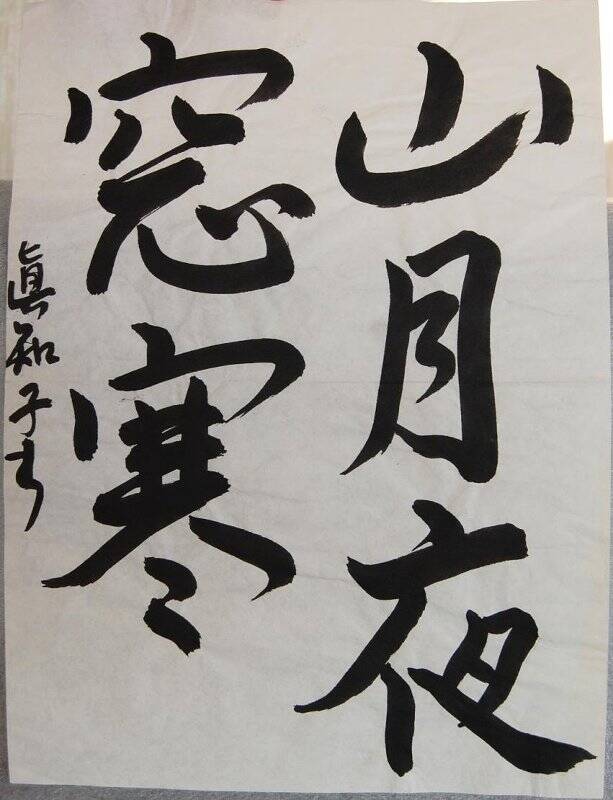 山月夜
窓寒
眞知子書